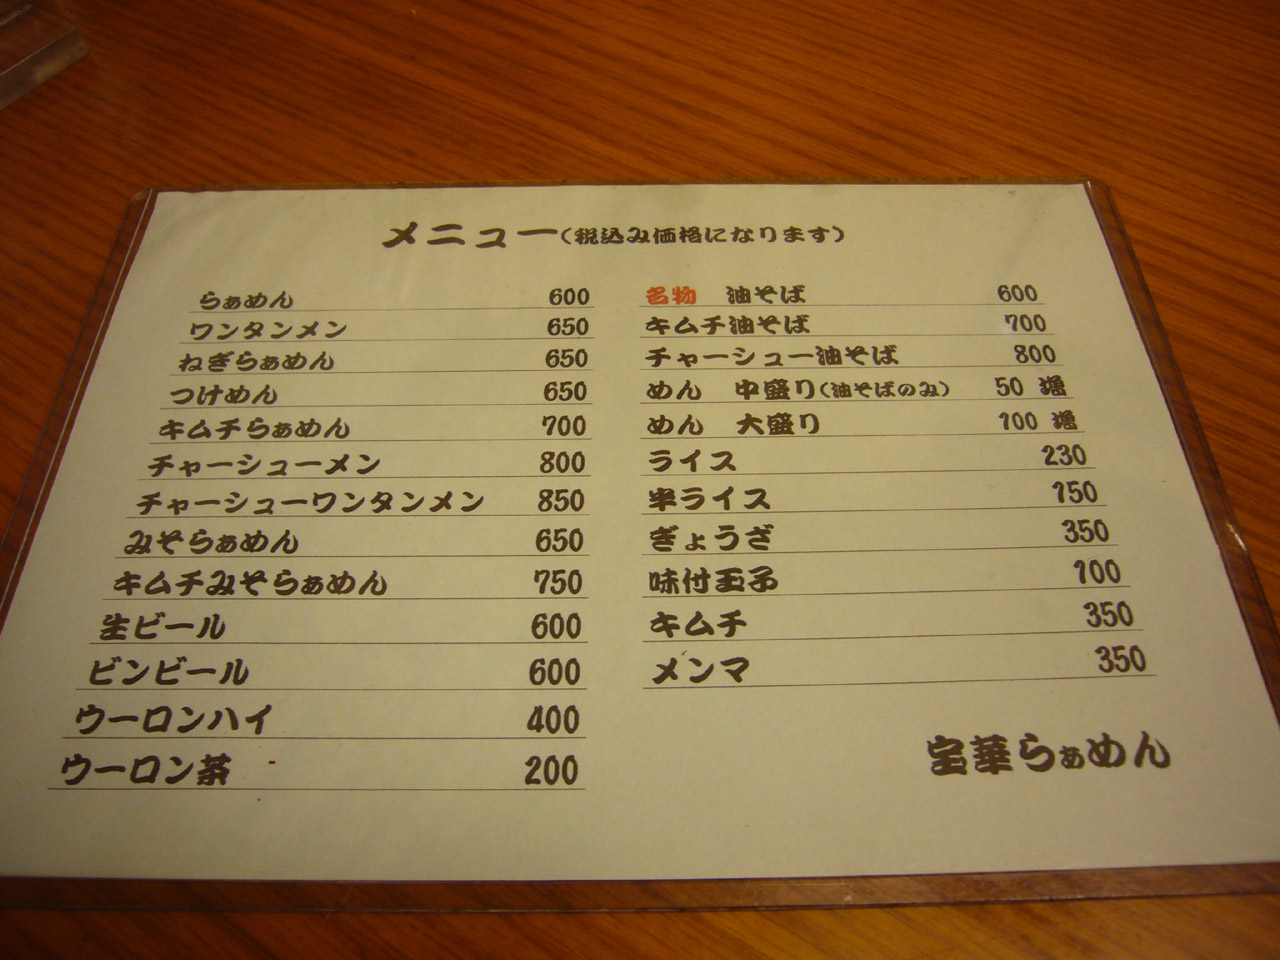 メニュー(税込み価格になります)
らぁめん 600
ワンタンメン 650
ねぎらぁめん 650
つけめん 650
キムチらぁめん 700
チャーシューメン 800
チャーシューワンタンメン 850
みそらぁめん 650
キムチみそらぁめん 750
生ビール 600
ビンビール 600
ウーロンハイ 400
ウーロン茶 200
名物 油そば 600
キムチ油そば 700
チャーシュー油そば 800
めん 中盛り(油そばのみ) 50 増
めん 大盛り 100 増
ライス 230
半ライス 150
ぎょうざ 350
味付玉子 100
キムチ 350
メンマ 350
宝華らぁめん